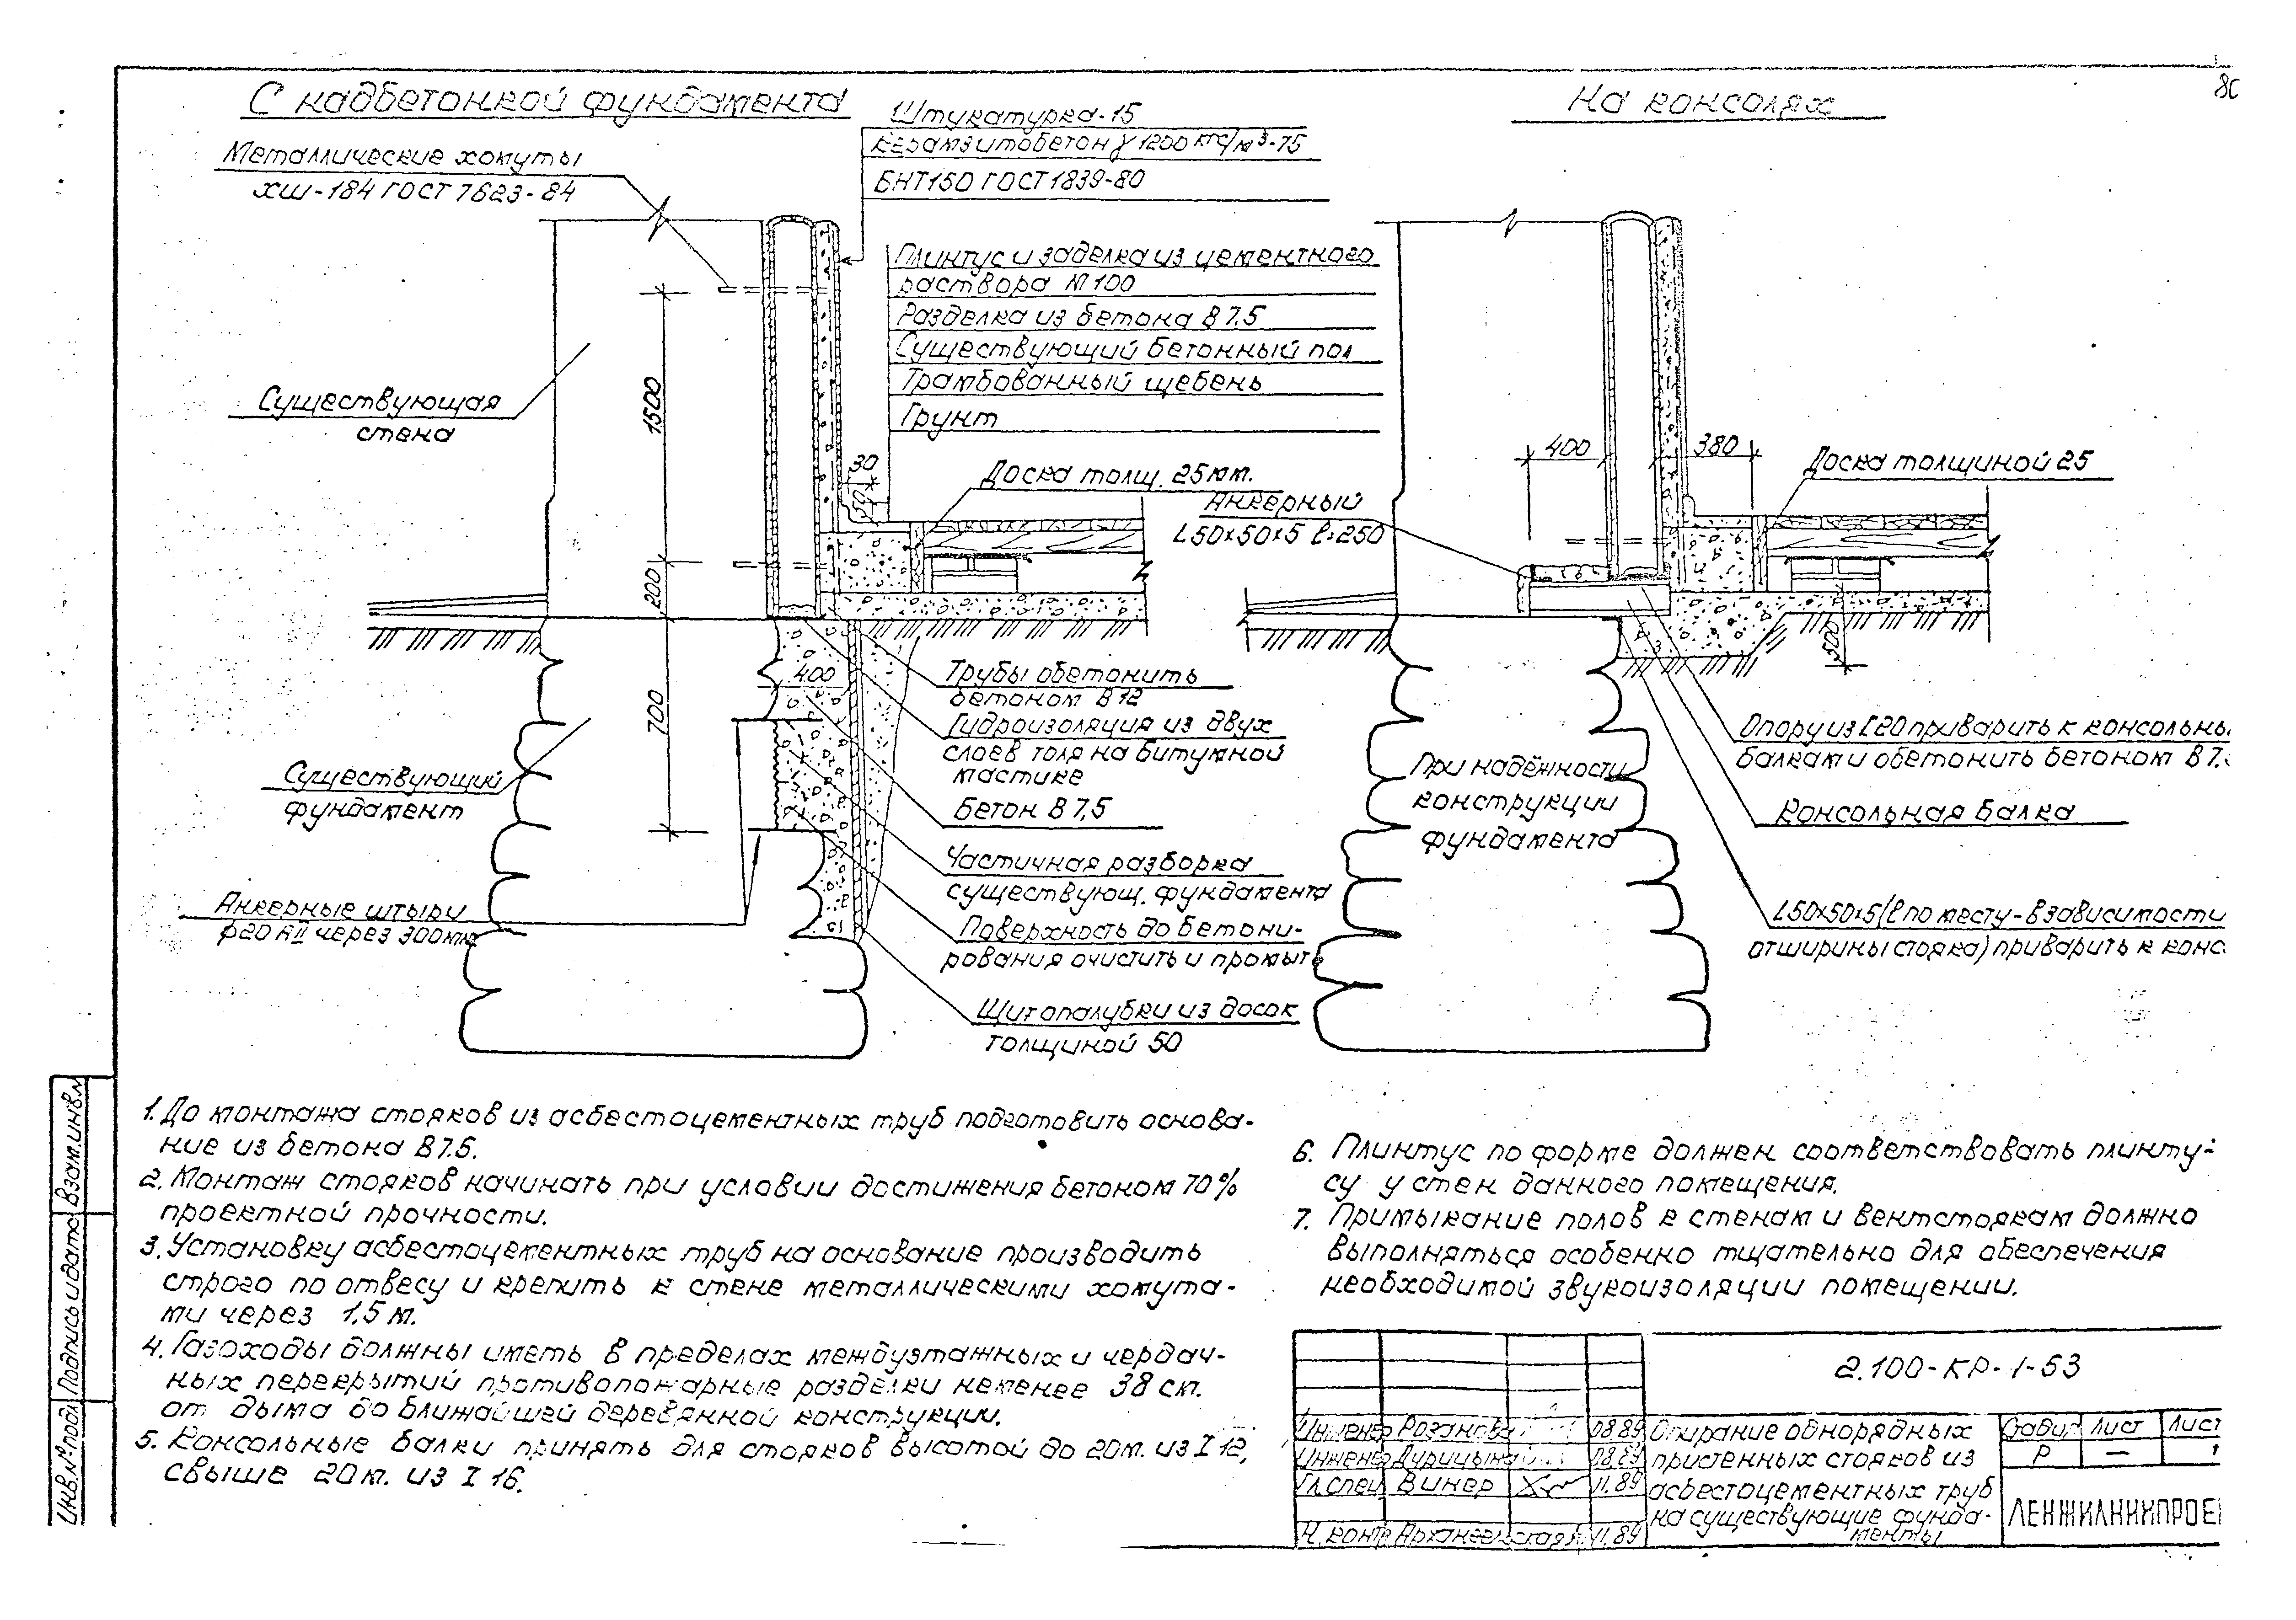 80
С надбетонкой фундамента
На консолях
Металлические хомуты
ХШ-184 ГОСТ 7623-84
Штукатурка-15
Керамзитобетон γ 1200 кгс/м³-75
БНТ150 ГОСТ 1839-80
Плинтус и заделка из цементного
раствора М 100
Разделка из бетона В 7.5
Существующий бетонный пол
Трамбованный щебень
Грунт
Существующая
стена
1500
200
700
30
50
400
Доска толщ. 25 мм.
Анкерный
L50×50×5 ℓ=250
400
380
Доска толщиной 25
500
Трубы обетонить
бетоном В 12
Гидроизоляция из двух
слоев толя на битумной
мастике
Бетон В 7,5
Частичная разборка
существующ. фундамента
Поверхность до бетони-
рования очистить и промыть
Щит опалубки из досок
толщиной 50
Существующий
фундамент
Анкерные штыри
φ20 АII через 300мм
При надёжности
конструкции
фундамента
Опору из [20 приварить к консольны
балкам и обетонить бетоном В 7.
Консольная балка
L50×50×5 (ℓ по месту - в зависимости
от ширины стояка) приварить к конс
1. До монтажа стояков из асбестоцементных труб подготовить основа-
ние из бетона В 7.5.
2. Монтаж стояков начинать при условии достижения бетоном 70%
проектной прочности.
3. Установку асбестоцементных труб на основание производить
строго по отвесу и крепить к стене металлическими хомута-
ми через 1,5 м.
4. Газоходы должны иметь в пределах междуэтажных и чердач-
ных перекрытий противопожарные разделки не менее 38 см.
от дыма до ближайшей деревянной конструкции.
5. Консольные балки принять для стояков высотой до 20м. из I 12,
свыше 20м. из I 16.
6. Плинтус по форме должен соответствовать плинту-
су у стен данного помещения.
7. Примыкание полов к стенам и вентстоякам должно
выполняться особенно тщательно для обеспечения
необходимой звукоизоляции помещении.
2.100-КР-1-53
Инженер Розанова 08.89
Инженер 08.89
Гл.спец. Винер 11.89
Н.контр. Архангельская 11.89
Опирание однорядных
пристенных стояков из
асбестоцементных труб
на существующие фунда-
менты
Стадия Лист Лист
Р — 1
ЛЕНЖИЛНИИПРОЕ
Взам.инв.№
Подпись и дата
Инв.№ подл